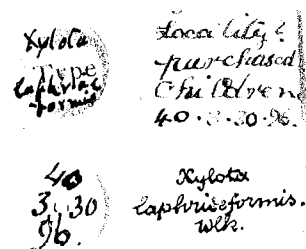 Xylota
Type
laphriæ
formis
Locality?
purchased
Children
40.3.30.96.
40
3.30
96.
Xylota
laphriæformis.
Wlk.